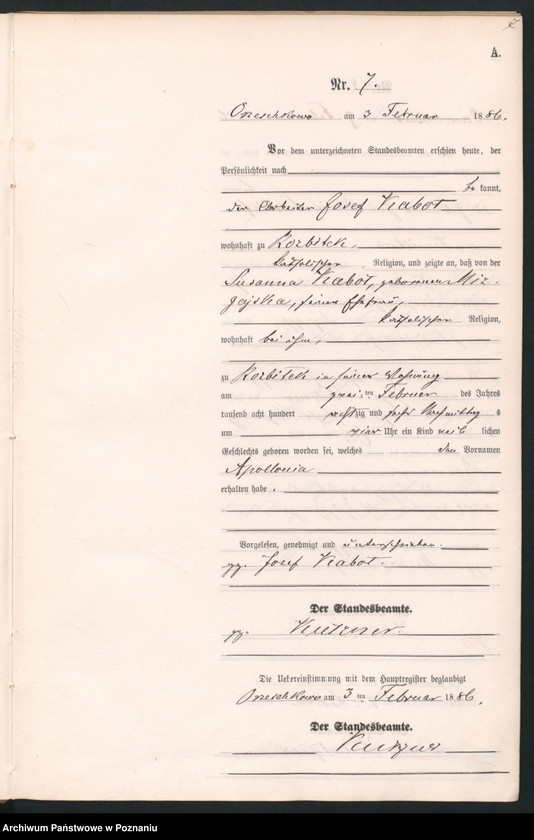 A.
Nr. 7.
Orzeschkowo am 3 Februar 1886.
Vor dem unterzeichneten Standesbeamten erschien heute, der
Persönlichkeit nach
be kannt,
der Arbeiter Josef Kabot
wohnhaft zu Korbitek,
katholischer Religion, und zeigte an, daß von der
Susanna Kabot, geborenen Miz-
gajska, seiner Ehefrau,
katholischer Religion,
wohnhaft bei ihm,
zu Korbitek in seiner Wohnung
am zwei ten Februar des Jahres
tausend acht hundert achtzig und sechs Vormittag s
um vier Uhr ein Kind weib lichen
Geschlechts geboren worden sei, welches den Vornamen
Apollonia
erhalten habe.
Vorgelesen, genehmigt und unterschrieben.
gez. Josef Kabot.
Der Standesbeamte.
gez. Kutzner.
Die Uebereinstimmung mit dem Hauptregister beglaubigt
Orzeschkowo am 3 ten Februar 1886.
Der Standesbeamte.
Kutzner
Archiwum Państwowe w Poznaniu